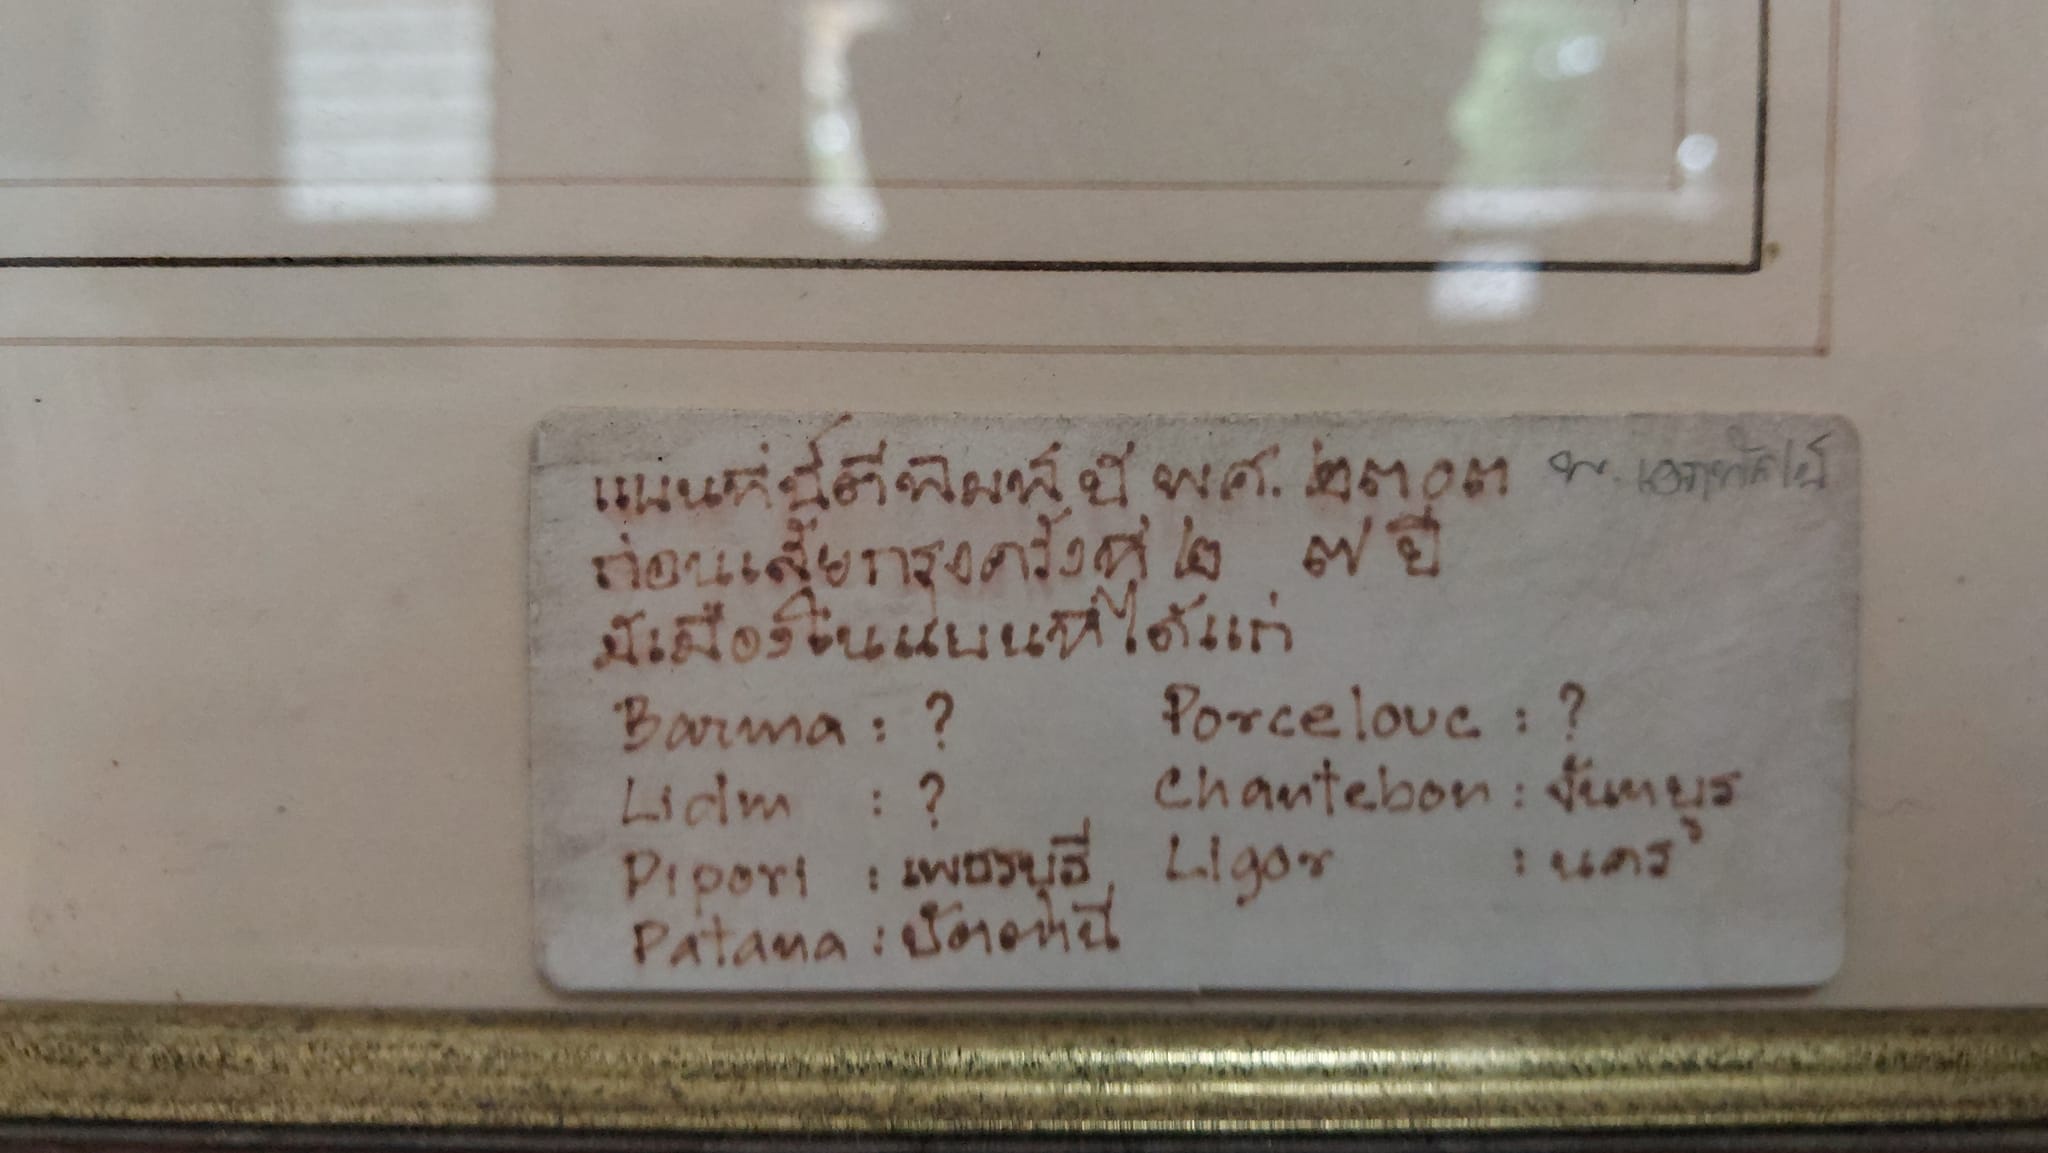 แผนที่นี้ตีพิมพ์ ปี พ.ศ. ๒๓๐๓ พ. เอกทัศน์
ก่อนเสียกรุงครั้งที่ ๒ ๗ ปี
มีเมืองในแผนที่ได้แก่
Barma : ? Porcelouc : ?
Lidm : ? Chantebon : จันทบูร
Pipori : เพชรบุรี Ligor : นคร
Patana : ปัตตานี